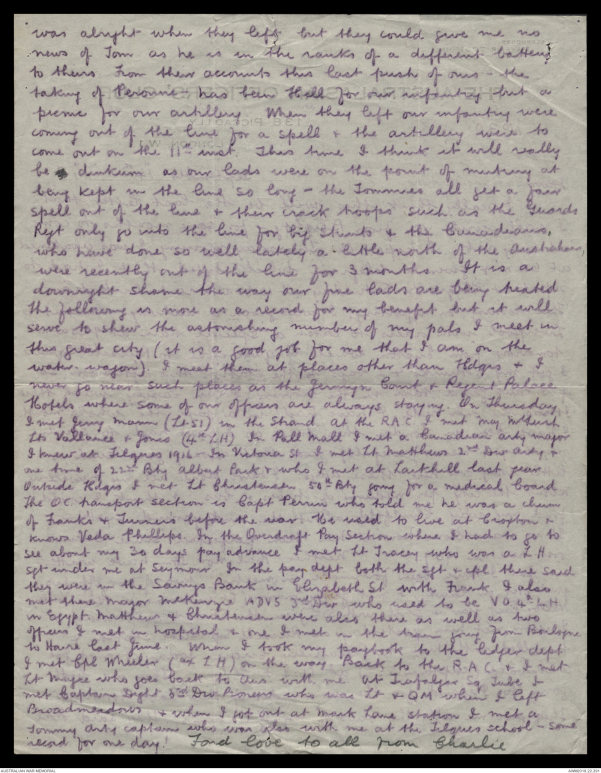 was alright when they left but they could give me no
news of Tom as he is in the ranks of a different battery
to theirs. From their accounts this last push of ours - the
taking of Peronne - has been Hell for our infantry but a
picnic for our artillery. When they left our infantry were
coming out of the line for a spell & the artillery were to
come out on the 11th inst. This time I think it will really
be dinkum as our lads were on the point of mutiny at
being kept in the line so long - the Tommies all get a fair
spell out of the line & their crack troops such as the Guards
Regt only go into the line for big stunts & the Canadians,
who have done so well lately a little north of the Australians,
were recently out of the line for 3 months. It is a
downright shame the way our fine lads are being treated
The following is more as a record for my benefit but it will
serve to shew the astonishing number of my pals I meet in
this great city (it is a good job for me that I am on the
water waggon) I meet them at places other than Hdqrs & I
never go near such places as the Jermyn Court & Regent Palace
Hotels where some of our officers are always staying. On Thursday
I met Gerry Mann (Lt 51) in the Strand. At the R.A.C. I met Maj
Lts Vallance & Jones (4th LH) In Pall Mall I met a Canadian arty major
I knew at Tilques 1916 - In Victoria St I met Lt Matthews 2nd Div arty &
one time of 22nd Bty Albert Park & who I met at Larkhill last year.
Outside Hdqrs I met Lt Christensen 50th Bty going for a medical board
The O.C. transport section is Capt Perrin who told me he was a chum
of Frank's & Turners before the war. He used to live at Croxton &
knows Veda Phillips. In the Overdraft Pay Section where I had to go to
see about my 30 days pay advance I met Lt Tracey who was a L.H.
sgt under me at Seymour. In the pay dept both the Sgt & cpl there said
they were in the Savings Bank in Elizabeth St with Frank. I also
met there Major McKenzie ADVS 3rd Div who used to be V.O. 4th LH
in Egypt. Matthews & Christensen were also there as well as two
officers I met in hospital & one I met in the train going from Boulogne
to Havre last June. When I took my paybook to the ledger dept
I met Cpl Wheeler (4th L H) on the way. Back to the R.A.C. & I met
Lt Magee who goes back to Aus with me. At Trafalgar Sq Tube I
met Captain Dight 5th Div who was Lt & QM when I left
Broadmeadows & when I got out at Mark Lane station I met a
Tommy arty captain who was also with me at the Tilques school - some
record for one day! Fond love to all from Charlie
AUSTRALIAN WAR MEMORIAL